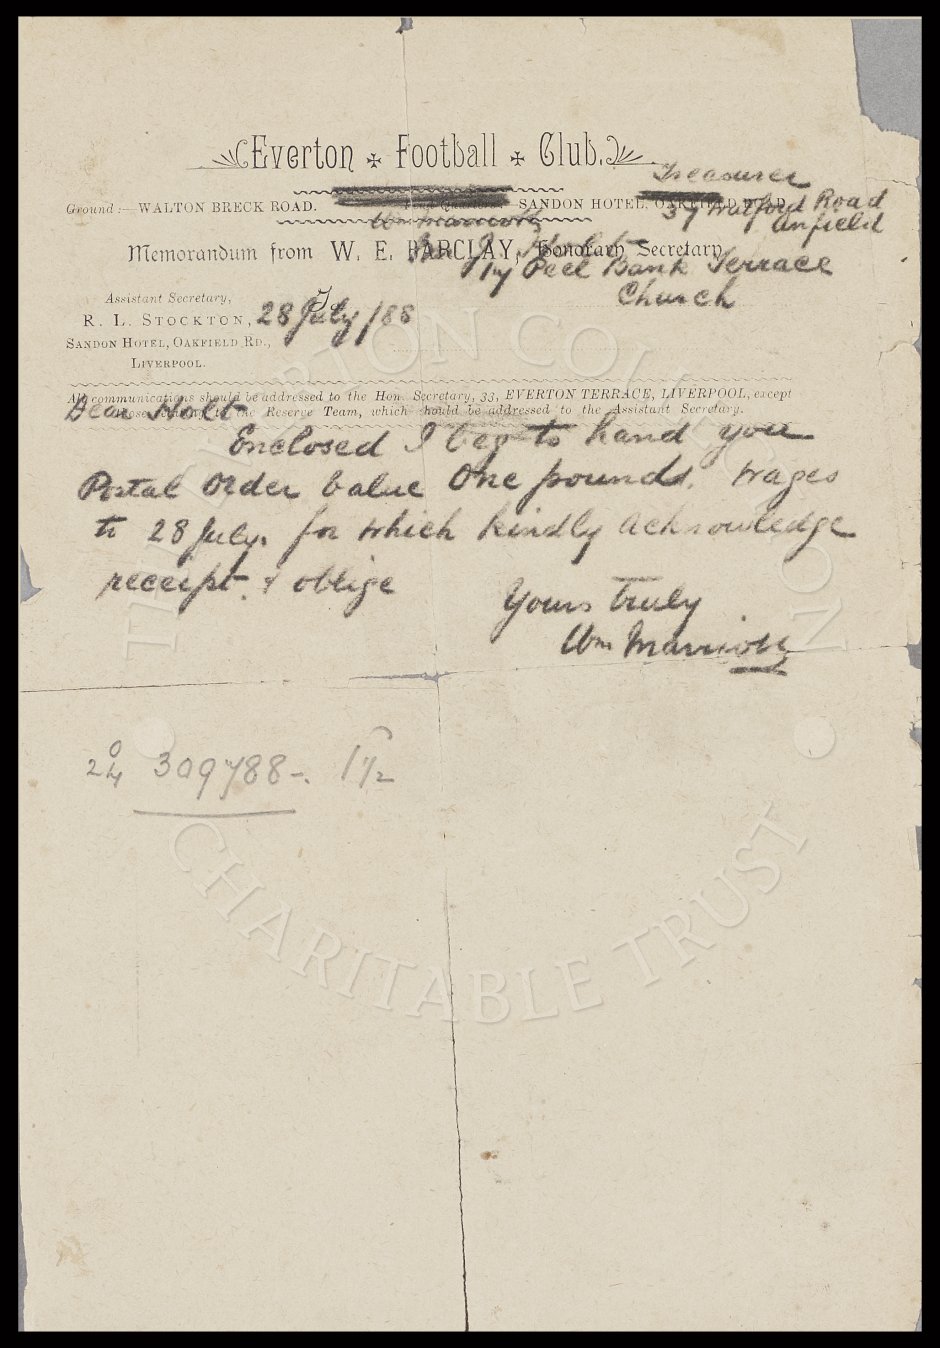 Everton Football Club.
Treasurer
Ground:— WALTON BRECK ROAD. SANDON HOTEL, OAKFIELD ROAD.
Wm Marriott 39 Watford Road
Anfield
Memorandum from W. E. BARCLAY, Honorary Secretary
Peel Bank Terrace
Church
Assistant Secretary,
R. L. STOCKTON, 28 July /88
SANDON HOTEL, OAKFIELD RD.,
LIVERPOOL.
All communications should be addressed to the Hon. Secretary, 33, EVERTON TERRACE, LIVERPOOL, except
those relating to the Reserve Team, which should be addressed to the Assistant Secretary.
Dear Holt
Enclosed I beg to hand you
Postal Order value One pounds. Wages
to 28 July. for which kindly acknowledge
receipt. & oblige
Yours truly
Wm Marriott
309788
THE EVERTON COLLECTION
CHARITABLE TRUST